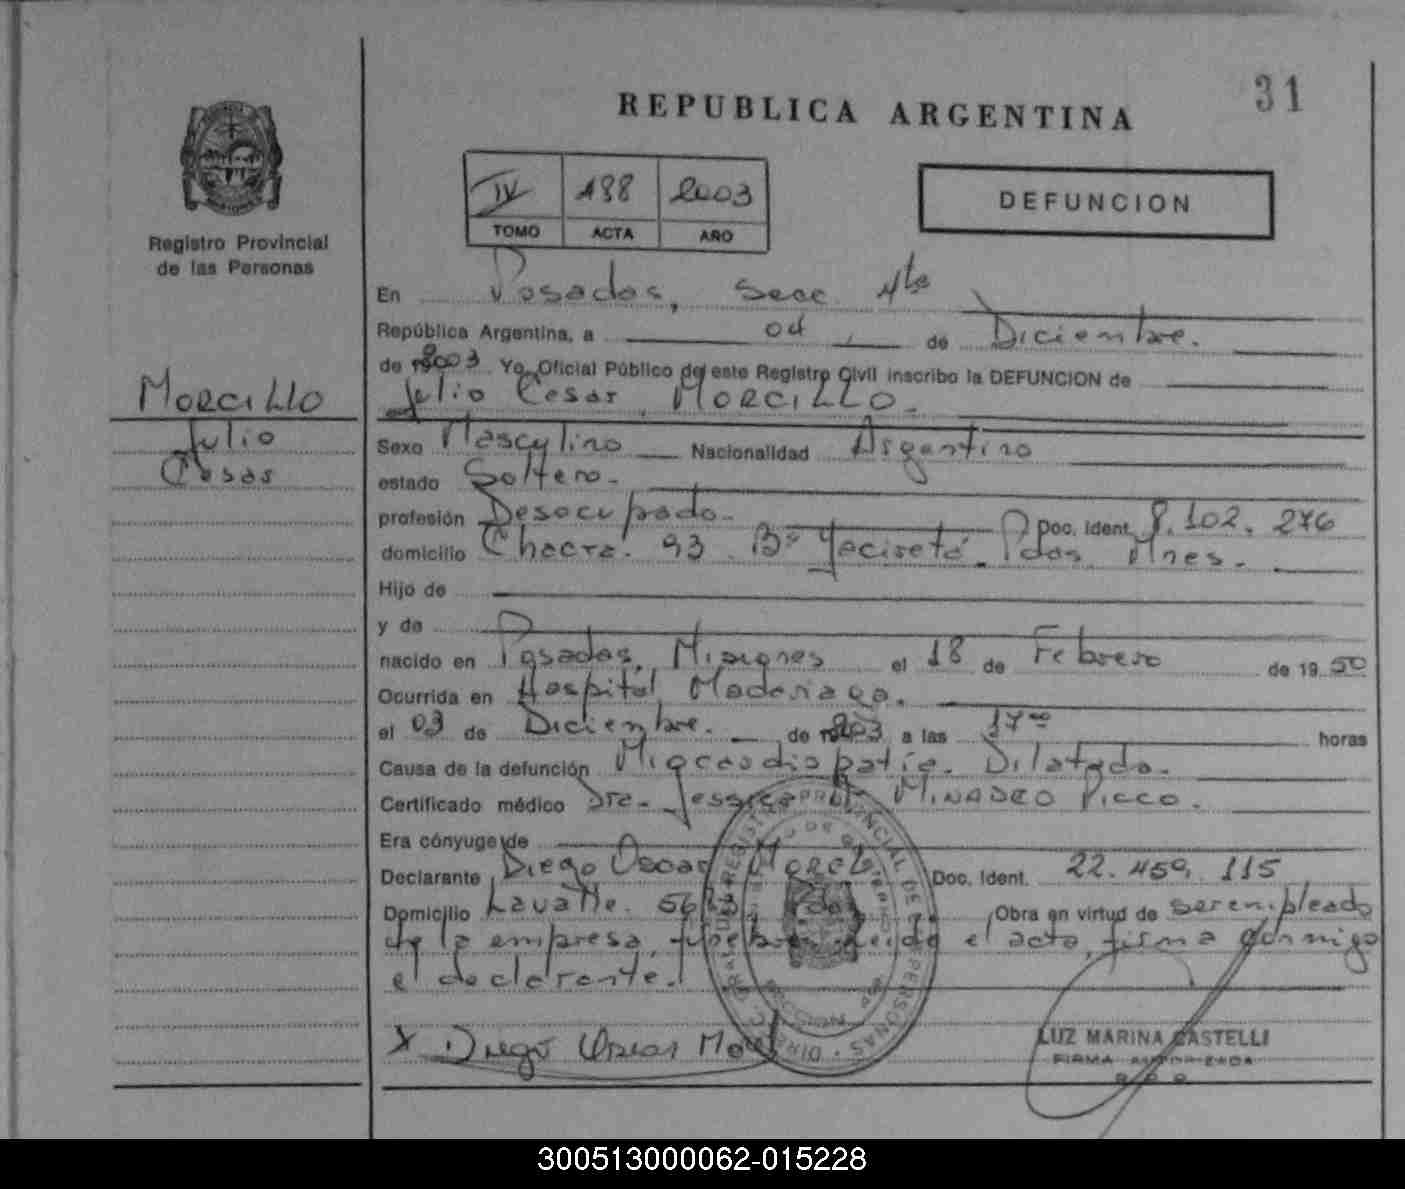 31
REPUBLICA ARGENTINA
IV 188 2003
TOMO ACTA AÑO
DEFUNCION
Registro Provincial
de las Personas
MORCILLO
Julio
Cesar
En Posadas, Secc 4ta
República Argentina, a 04 de Diciembre.
de 2003 Yo, Oficial Público de este Registro Civil inscribo la DEFUNCION de
Julio Cesar MORCILLO.
Sexo Masculino Nacionalidad Argentino
estado Soltero.
profesión Desocupado. Doc. Ident. 8.102.276
domicilio Chacra. 93 Bº Yacireta. Pdas. Mnes.
Hijo de
y de
nacido en Posadas, Misiones el 18 de Febrero de 1950
Ocurrida en Hospital Madariaga.
el 03 de Diciembre. de 2003 a las 17 00 horas
Causa de la defunción Miocardiopatía. Dilatada.
Certificado médico Dra. Jessica MINADEO PICCO.
Era cónyuge de
Declarante Diego Oscar Doc. Ident. 22.459.115
Domicilio Lavalle. Obra en virtud de ser empleado
de la empresa, el acto, firma conmigo
el declarante.
X Diego Oscar
DIREC. GRAL. DE REGISTRO PROVINCIAL DE LAS PERSONAS
LUZ MARINA CASTELLI
FIRMA AUTORIZADA
300513000062-015228